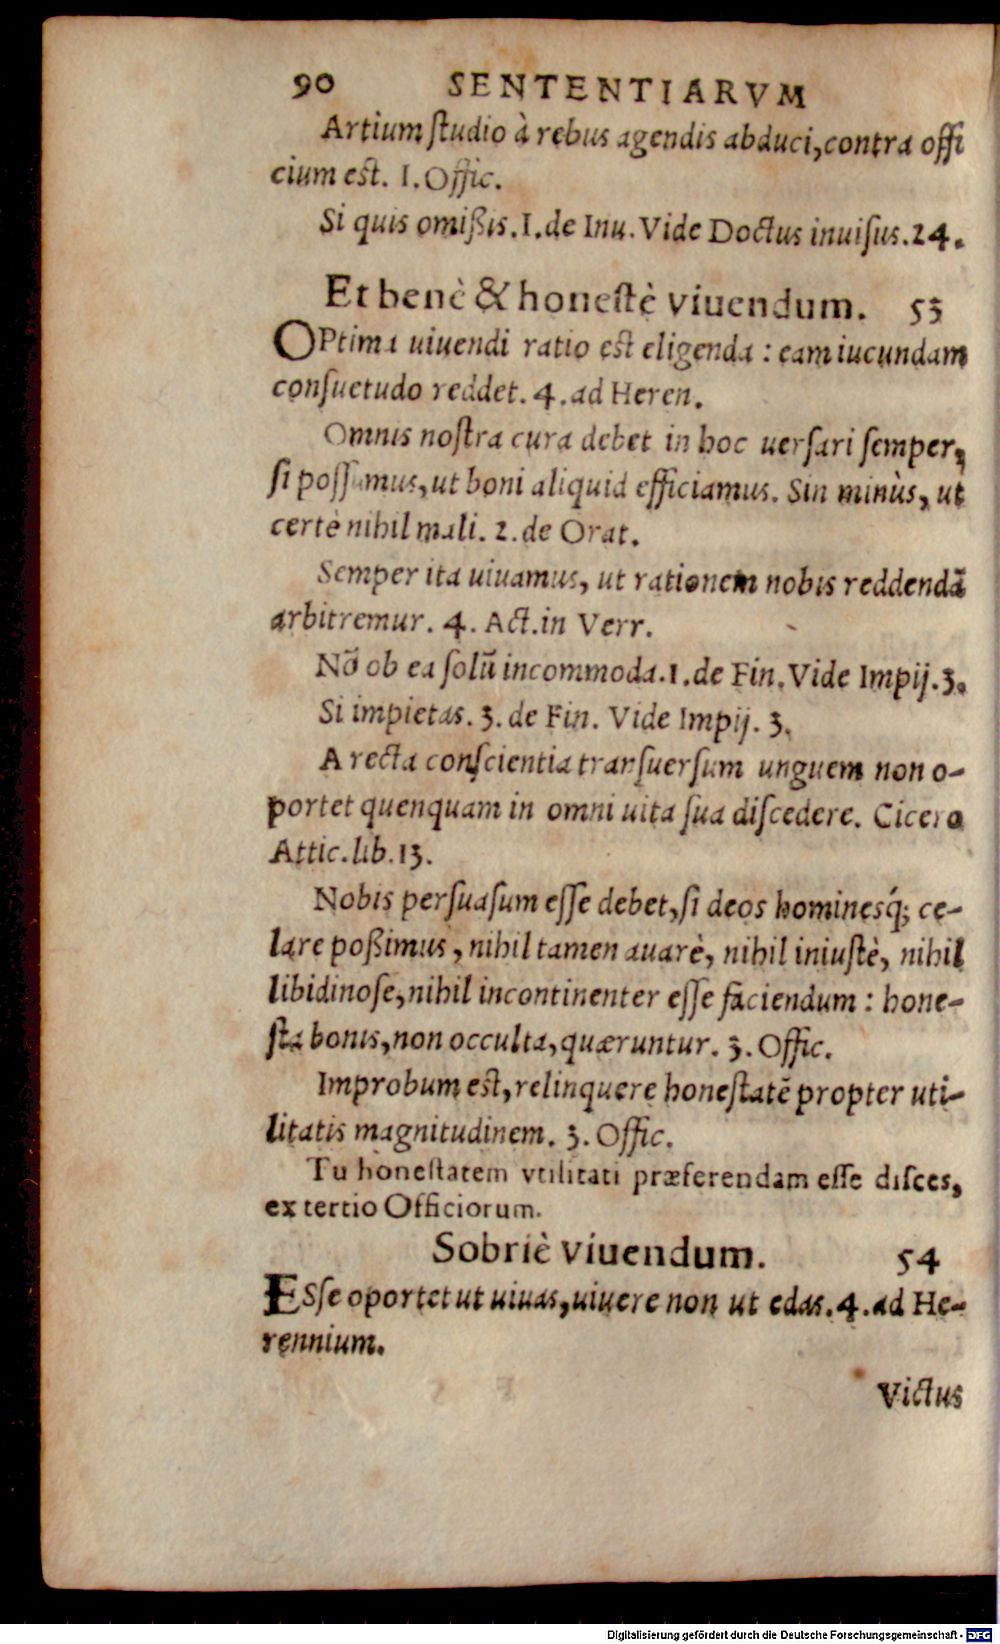 90 SENTENTIARVM
Artium ſtudio à rebus agendis abduci, contra offi
cium est. 1. Offic.
Si quis omißis. 1. de Inu. Vide Doctus inuiſus. 24.
Et benè & honeſtè viuendum. 53
OPtima uiuendi ratio est eligenda : eam iucundam
conſuetudo reddet. 4. ad Heren.
Omnis noſtra cura debet in hoc uerſari ſemper,
ſi poſſumus, ut boni aliquid efficiamus. Sin minùs, ut
certè nihil mali. 2. de Orat.
Semper ita uiuamus, ut rationem nobis reddendã
arbitremur. 4. Act. in Verr.
Nõ ob ea ſolũ incommoda. 1. de Fin. Vide Impij. 3.
Si impietas. 3. de Fin. Vide Impij. 3.
A recta conſcientia tranſuerſum unguem non o-
portet quenquam in omni uita ſua diſcedere. Cicero
Attic. lib. 13.
Nobis perſuaſum eſſe debet, ſi deos hominesq́; ce-
lare poßimus, nihil tamen auarè, nihil iniuſtè, nihil
libidinoſe, nihil incontinenter eſſe faciendum : hone-
ſta bonis, non occulta, quæruntur. 3. Offic.
Improbum est, relinquere honeſtatẽ propter uti-
litatis magnitudinem. 3. Offic.
Tu honeſtatem vtilitati præferendam eſſe diſces,
ex tertio Officiorum.
Sobriè viuendum. 54
ESſe oportet ut uiuas, uiuere non ut edas. 4. ad He-
rennium.
Victus
Digitalisierung gefördert durch die Deutsche Forschungsgemeinschaft - DFG